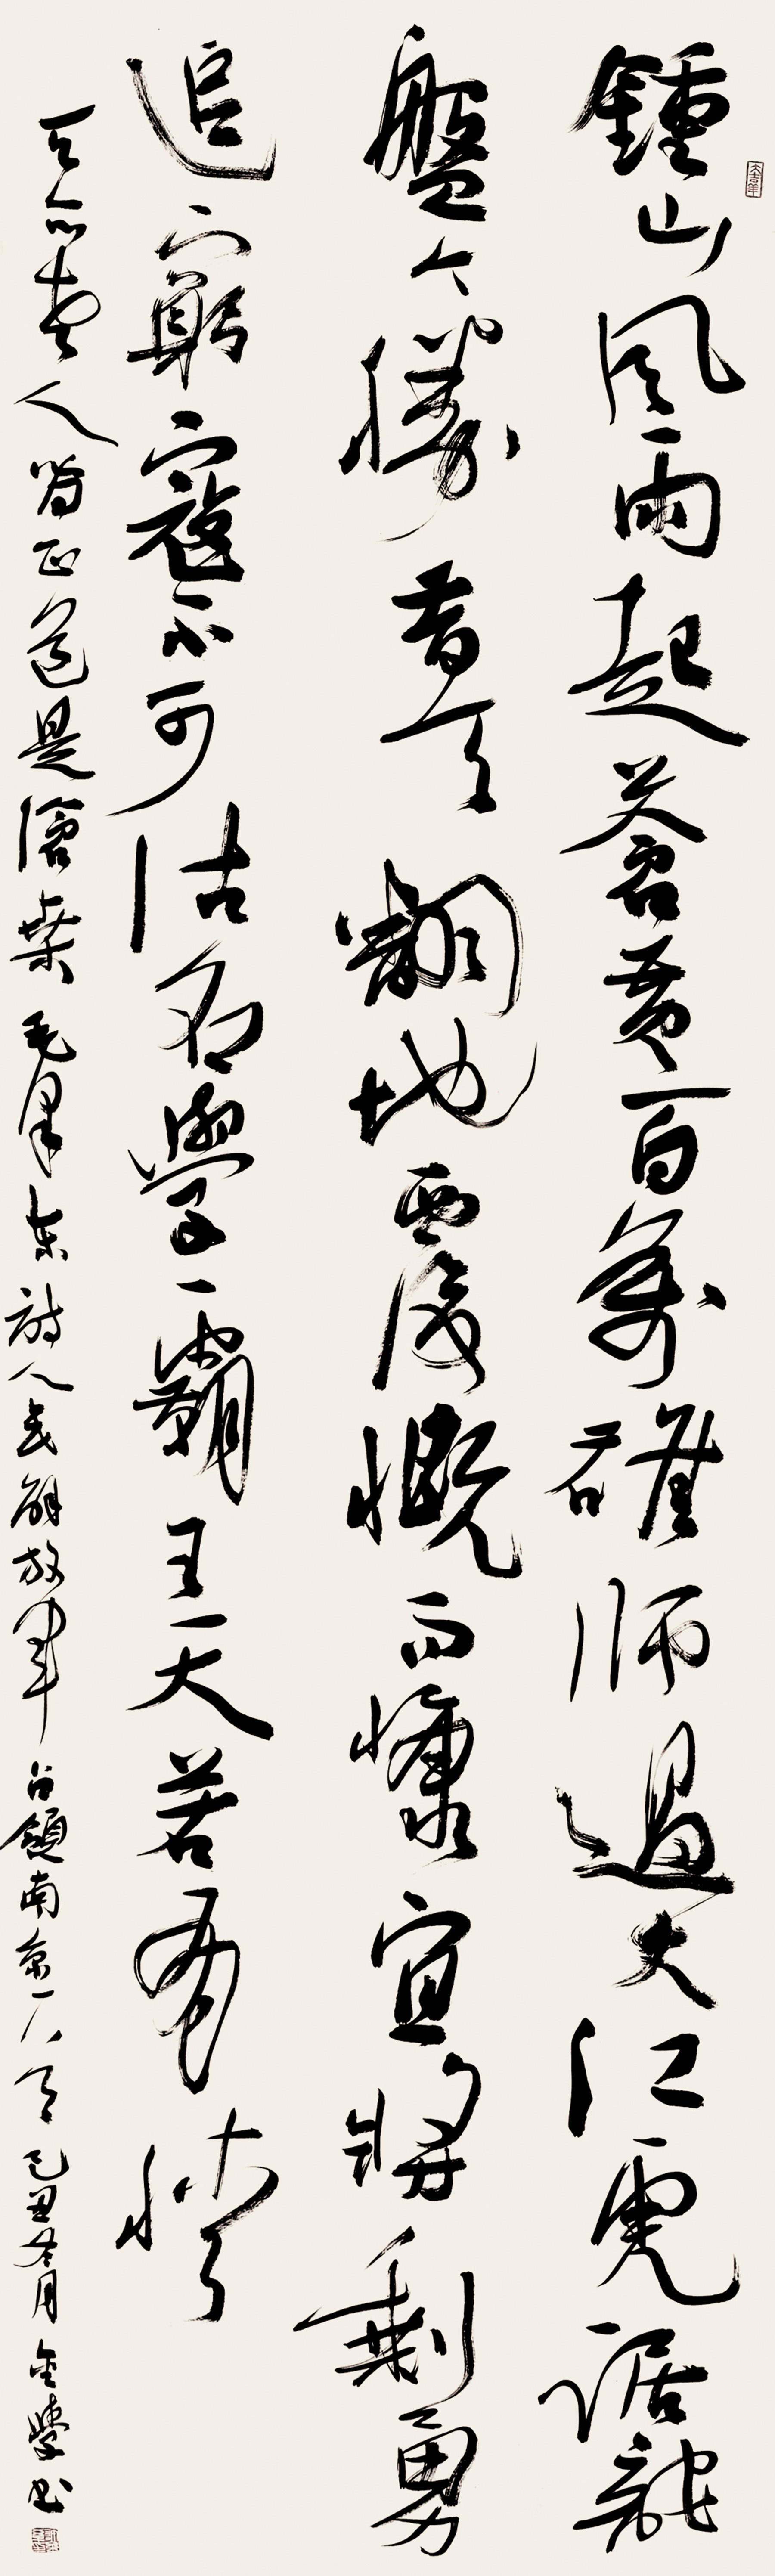 大吉羊
鍾山風雨起蒼黃百萬雄師過大江虎踞龍
盤今勝昔天翻地覆慨而慷宜將剩勇
追窮寇不可沽名學霸王天若有情
天亦老人間正道是滄桑毛澤東詩人民解放軍占領南京己丑月書